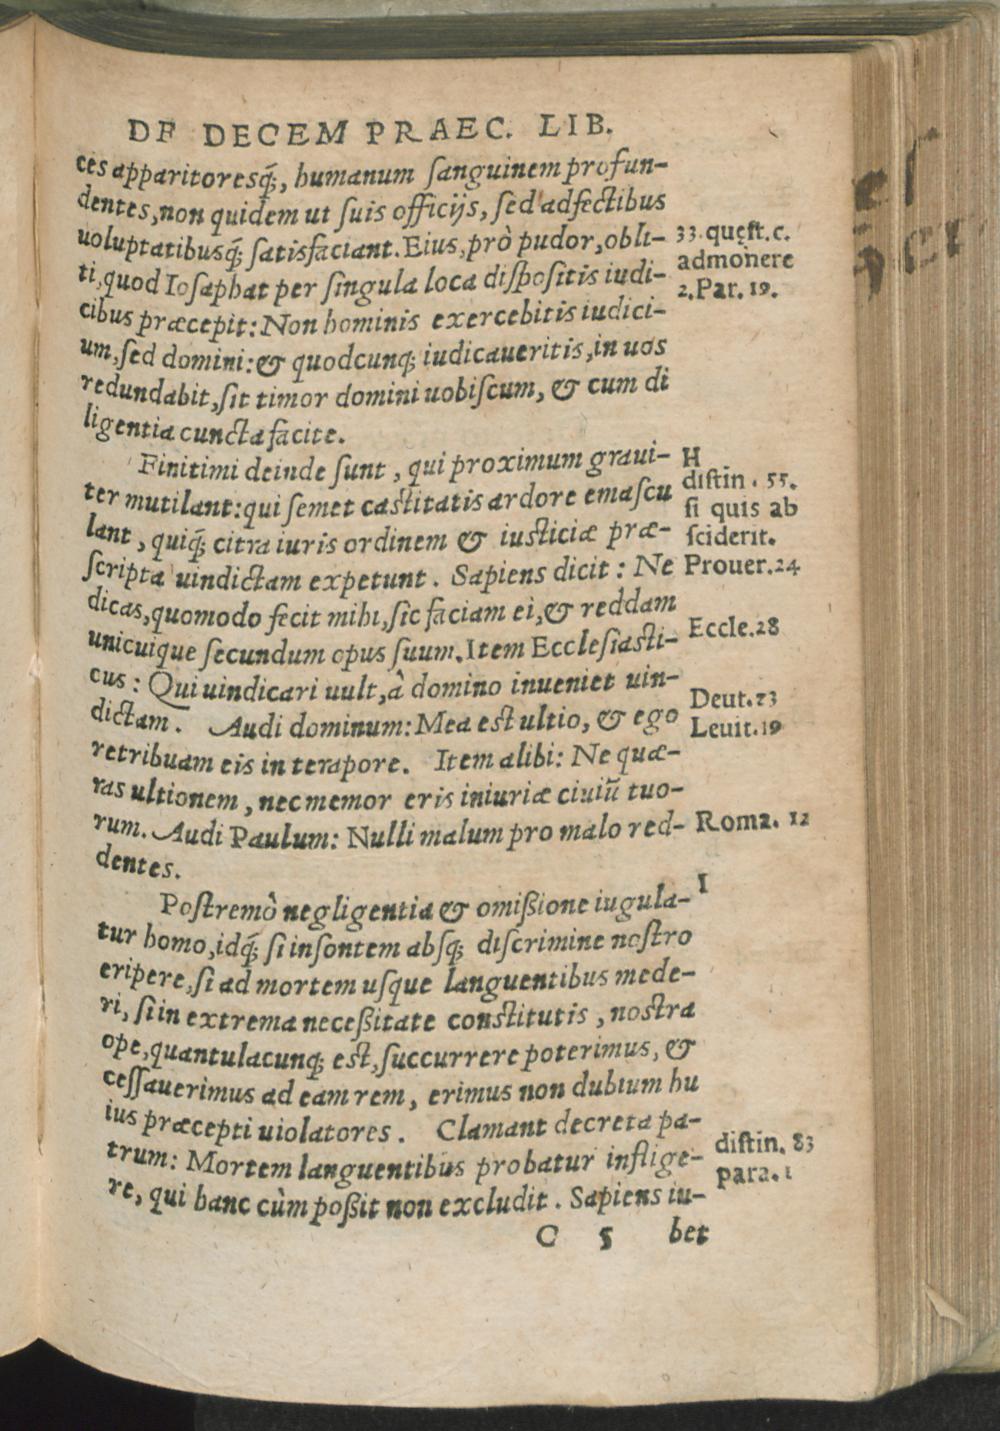 DE DECEM PRAEC. LIB.
ces apparitoresq́;, humanum ſanguinem profun-
dentes, non quidem ut ſuis officijs, ſed adfectibus
uoluptatibusq́; ſatisfaciant. Eius, prò pudor, obli-
ti, quod Ioſaphat per ſingula loca diſpoſitis iudi-
cibus præcepit: Non hominis exercebitis iudici-
um, ſed domini: & quodcunq; iudicaueritis, in uos
redundabit, ſit timor domini uobiſcum, & cum di
ligentia cuncta facite.
33. quęſt. c.
admonere
2. Par. 19.
Finitimi deinde ſunt, qui proximum graui-
ter mutilant: qui ſemet caſtitatis ardore emaſcu
lant, quiq́; citra iuris ordinem & iuſticiæ præ-
ſcripta uindictam expetunt. Sapiens dicit: Ne
dicas, quomodo fecit mihi, ſic faciam ei, & reddam
unicuique ſecundum opus ſuum. Item Eccleſiaſti-
cus: Qui uindicari uult, â domino inueniet uin-
dictam. Audi dominum: Mea eſt ultio, & ego
retribuam eis in terapore. Item alibi: Ne quæ-
ras ultionem, nec memor eris iniuriæ ciuiū tuo-
rum. Audi Paulum: Nulli malum pro malo red-
dentes.
H
diſtin. 55.
ſi quis ab
ſciderit.
Prouer. 24
Eccle. 28
Deut. 23
Leuit. 19
Roma. 12
Poſtremò negligentia & omißione iugula-
tur homo, idq́; ſi inſontem abſq; diſcrimine noſtro
eripere, ſi ad mortem uſque languentibus mede-
ri, ſi in extrema neceßitate conſtitutis, noſtra
ope, quantulacunq; eſt, ſuccurrere poterimus, &
ceſſauerimus ad eam rem, erimus non dubium hu
ius præcepti uiolatores. Clamant decreta pa-
trum: Mortem languentibus probatur inflige-
re, qui hanc cùm poßit non excludit. Sapiens iu-
I
diſtin. 83
para. 1
C 5 bet